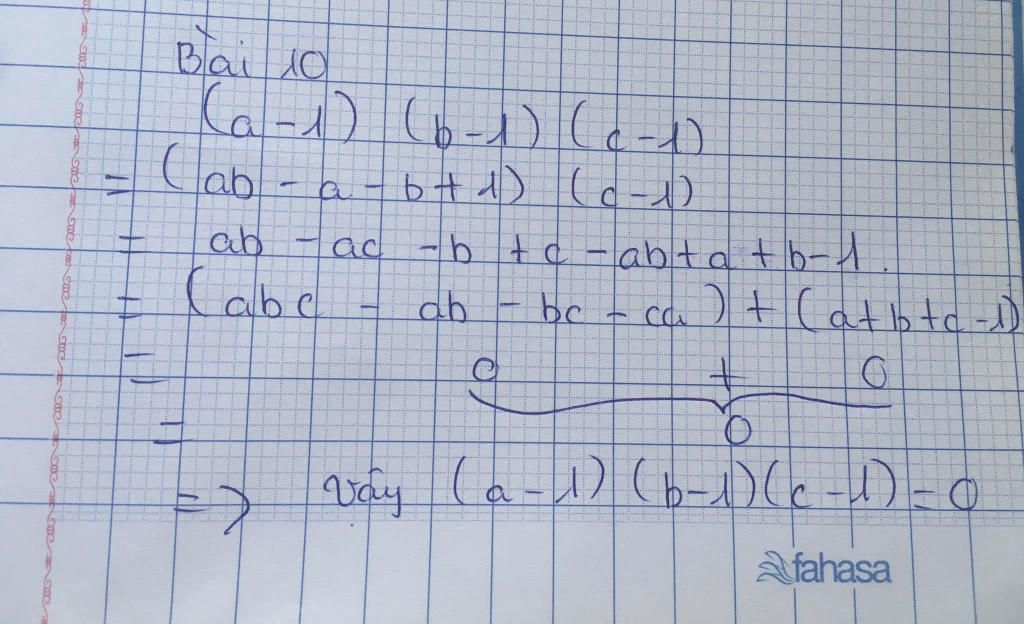 Bài 10
(a-1) (b-1) (c-1)
= (ab - a - b + 1) (c-1)
= ab - ac - b + c - ab + a + b - 1.
= (abc - ab - bc - ca) + (a+b+c-1)
= 0 + 0
= 0
=> Vậy (a-1) (b-1)(c-1) = 0
fahasa